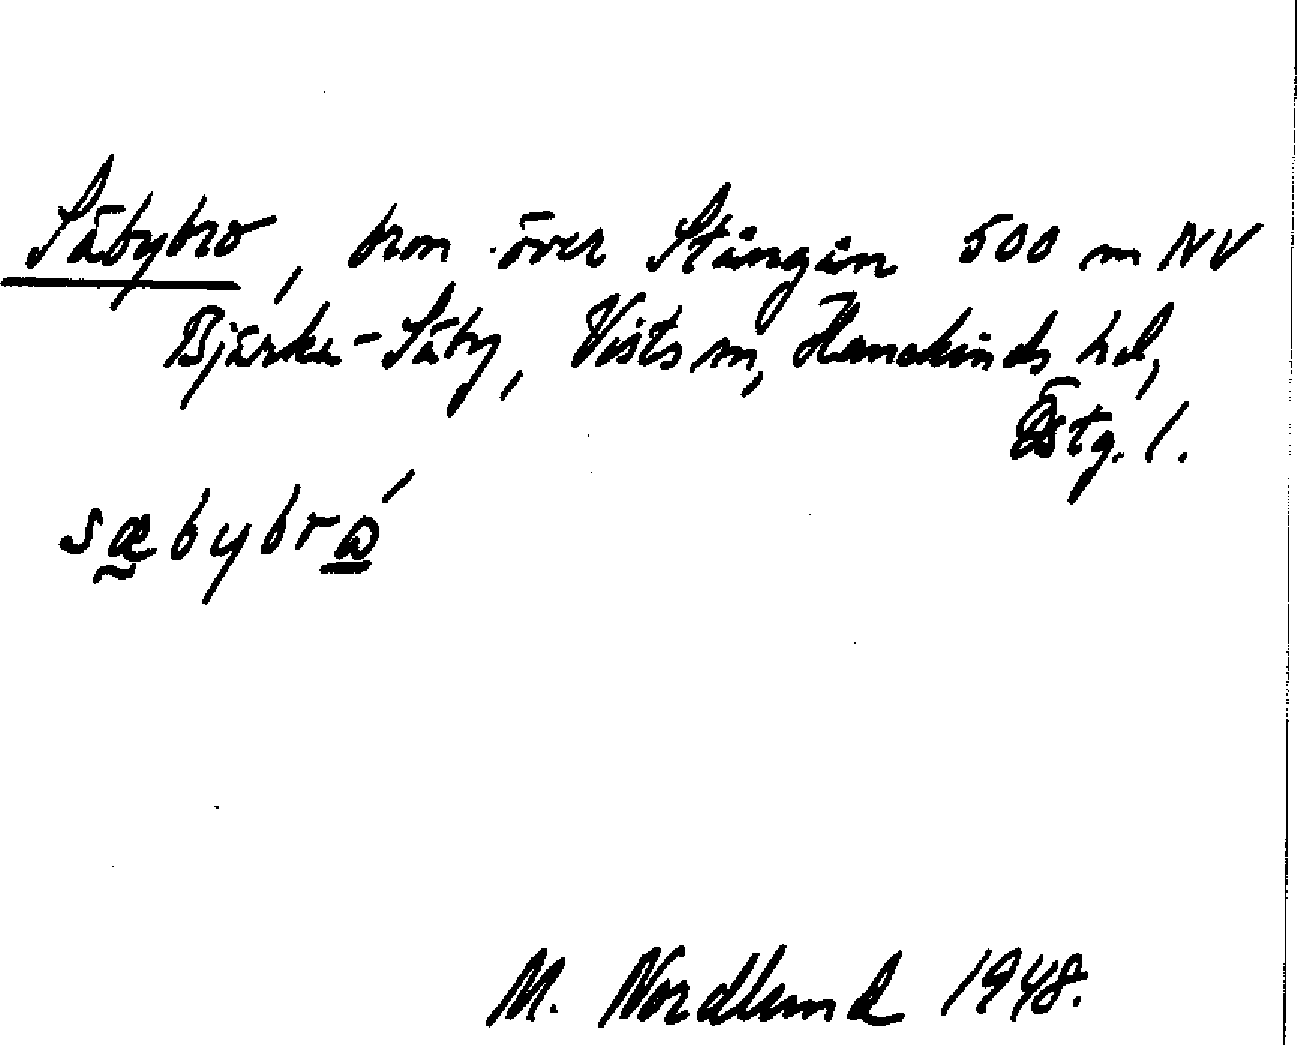 Säbybro, bron över Stångån 500 m NV
Bjärka-Säby, Vists sn, Hanekinds hd,
Östg. l.
sæbybrώ
M. Nordlund 1948.